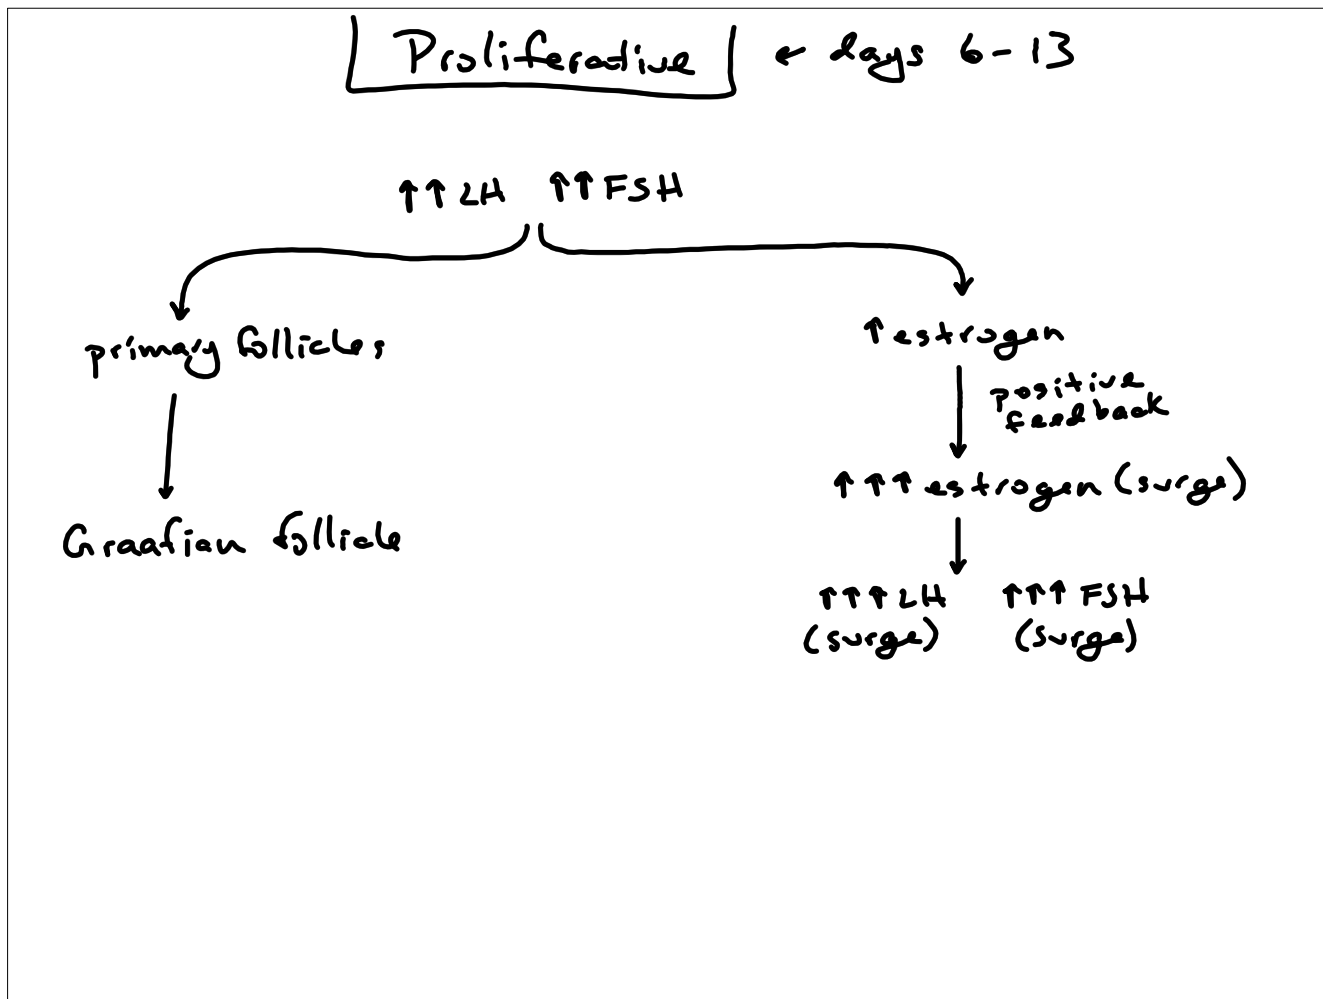 Proliferative ← days 6-13
↑↑LH ↑↑FSH
primary follicles
Graafian follicle
↑estrogen
positive
feedback
↑↑↑estrogen (surge)
↑↑↑LH ↑↑↑FSH
(surge) (surge)